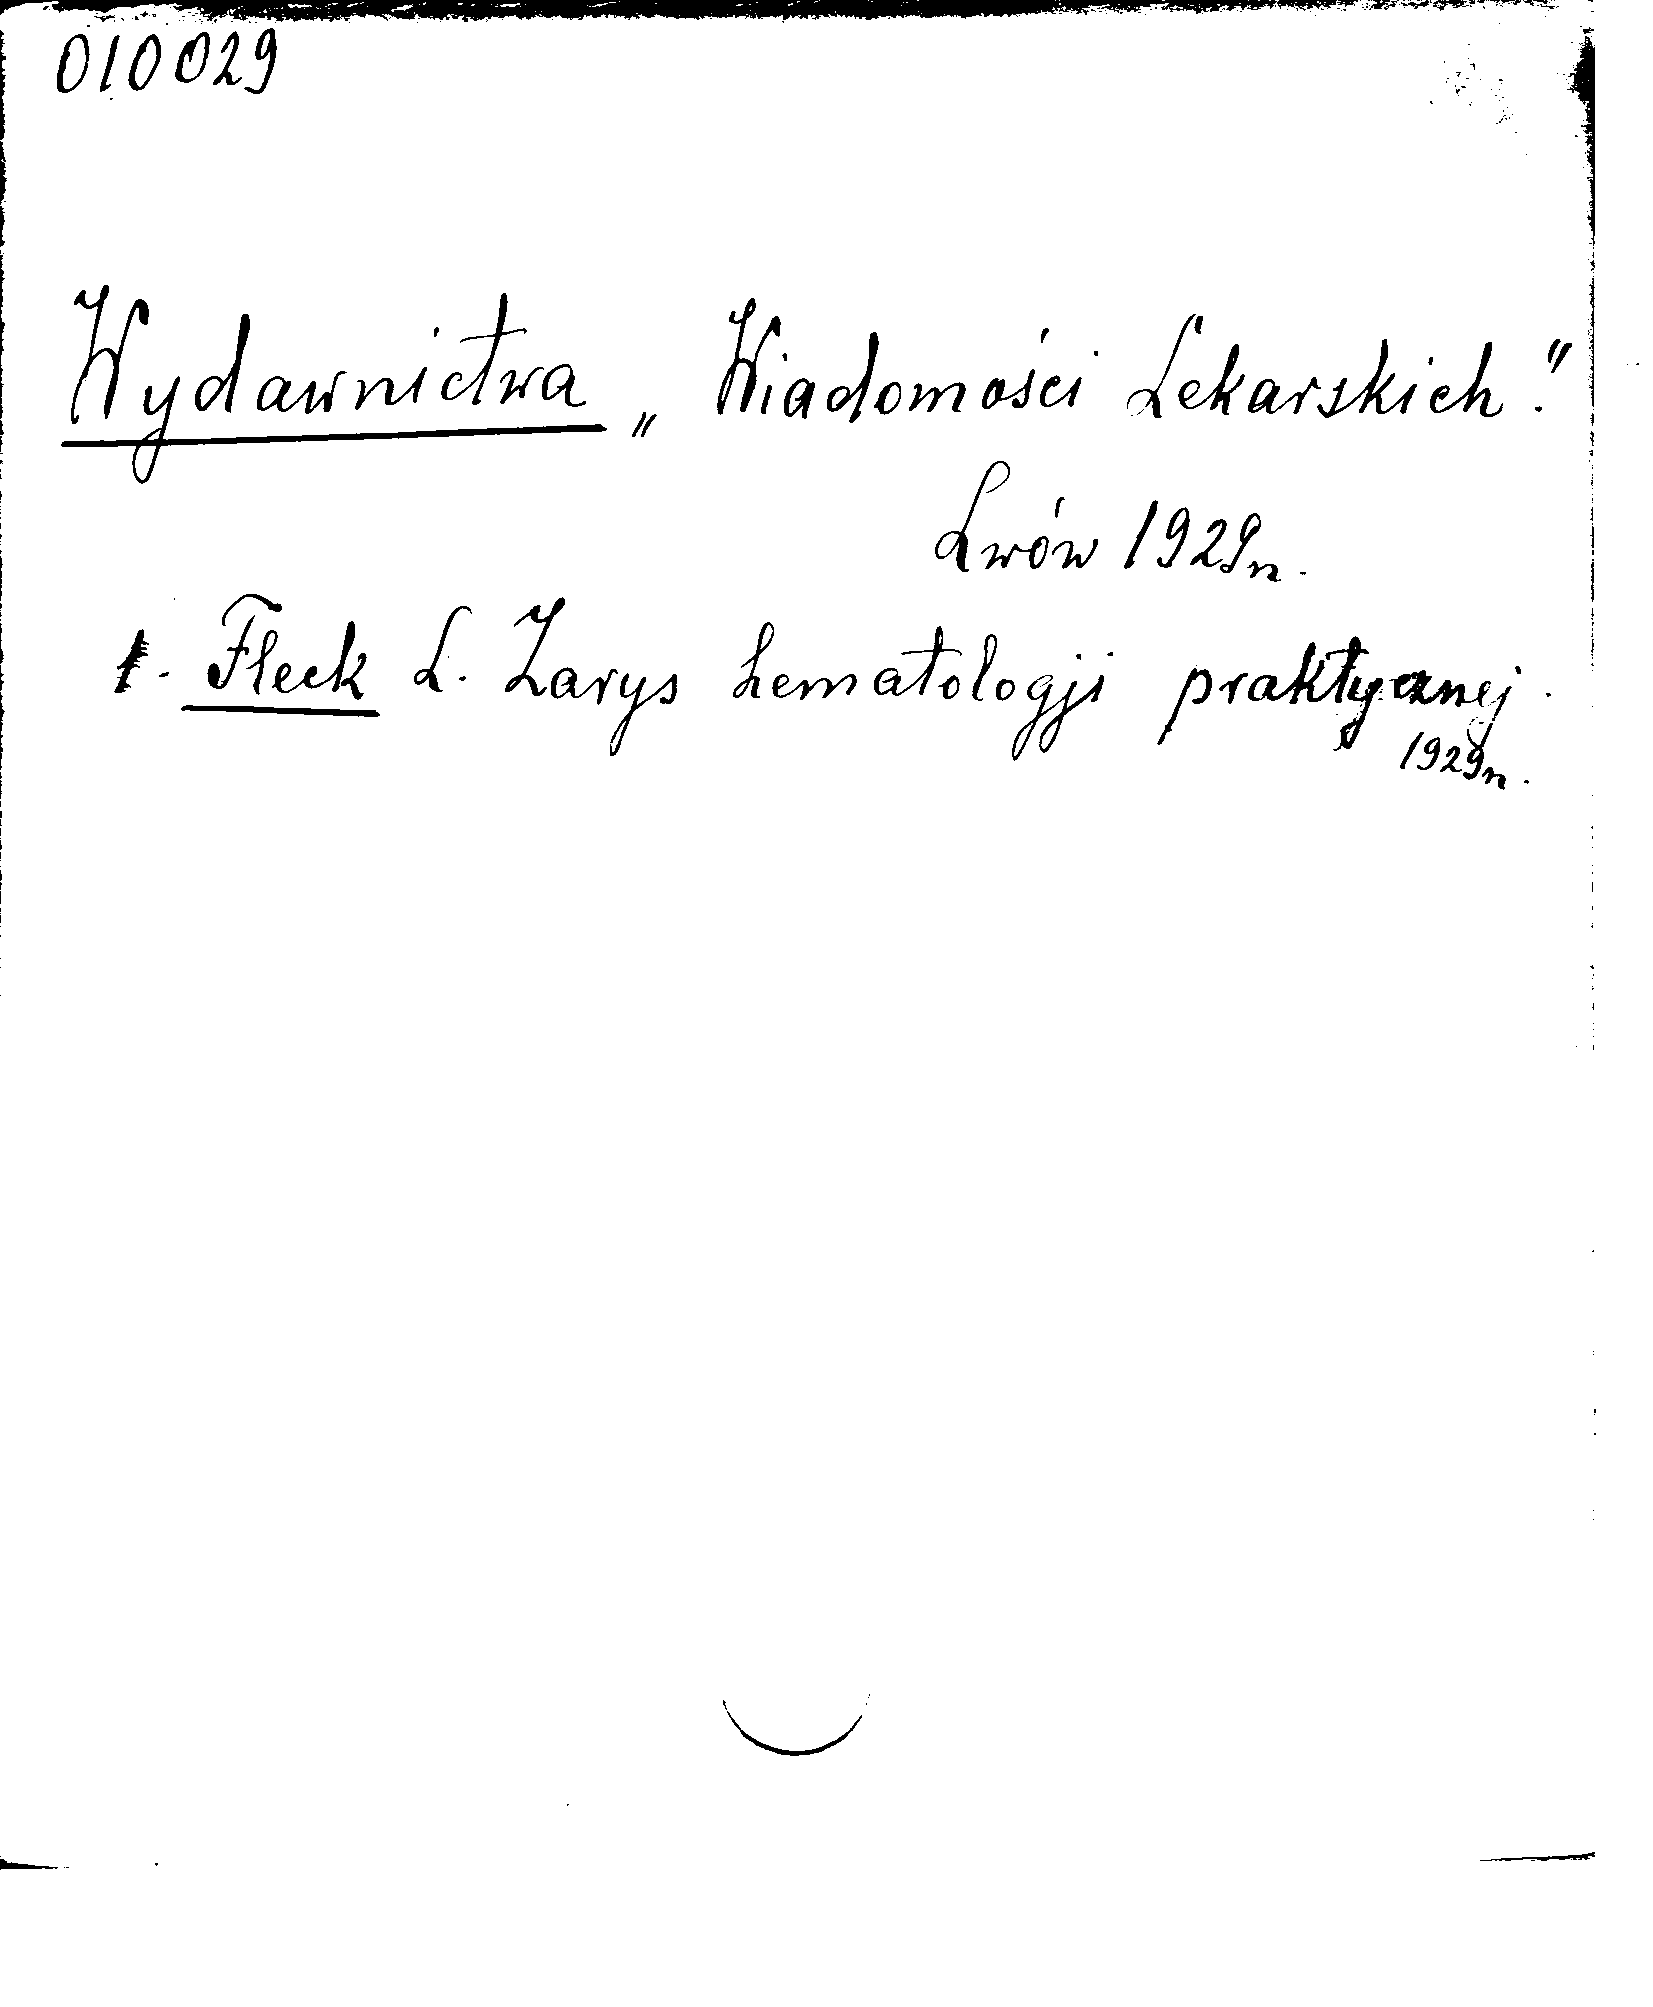 010029
Wydawnictwa „Wiadomości Lekarskich."
Lwów 1929r.
1. Fleck L. Zarys hematologji praktycznej.
1929r.